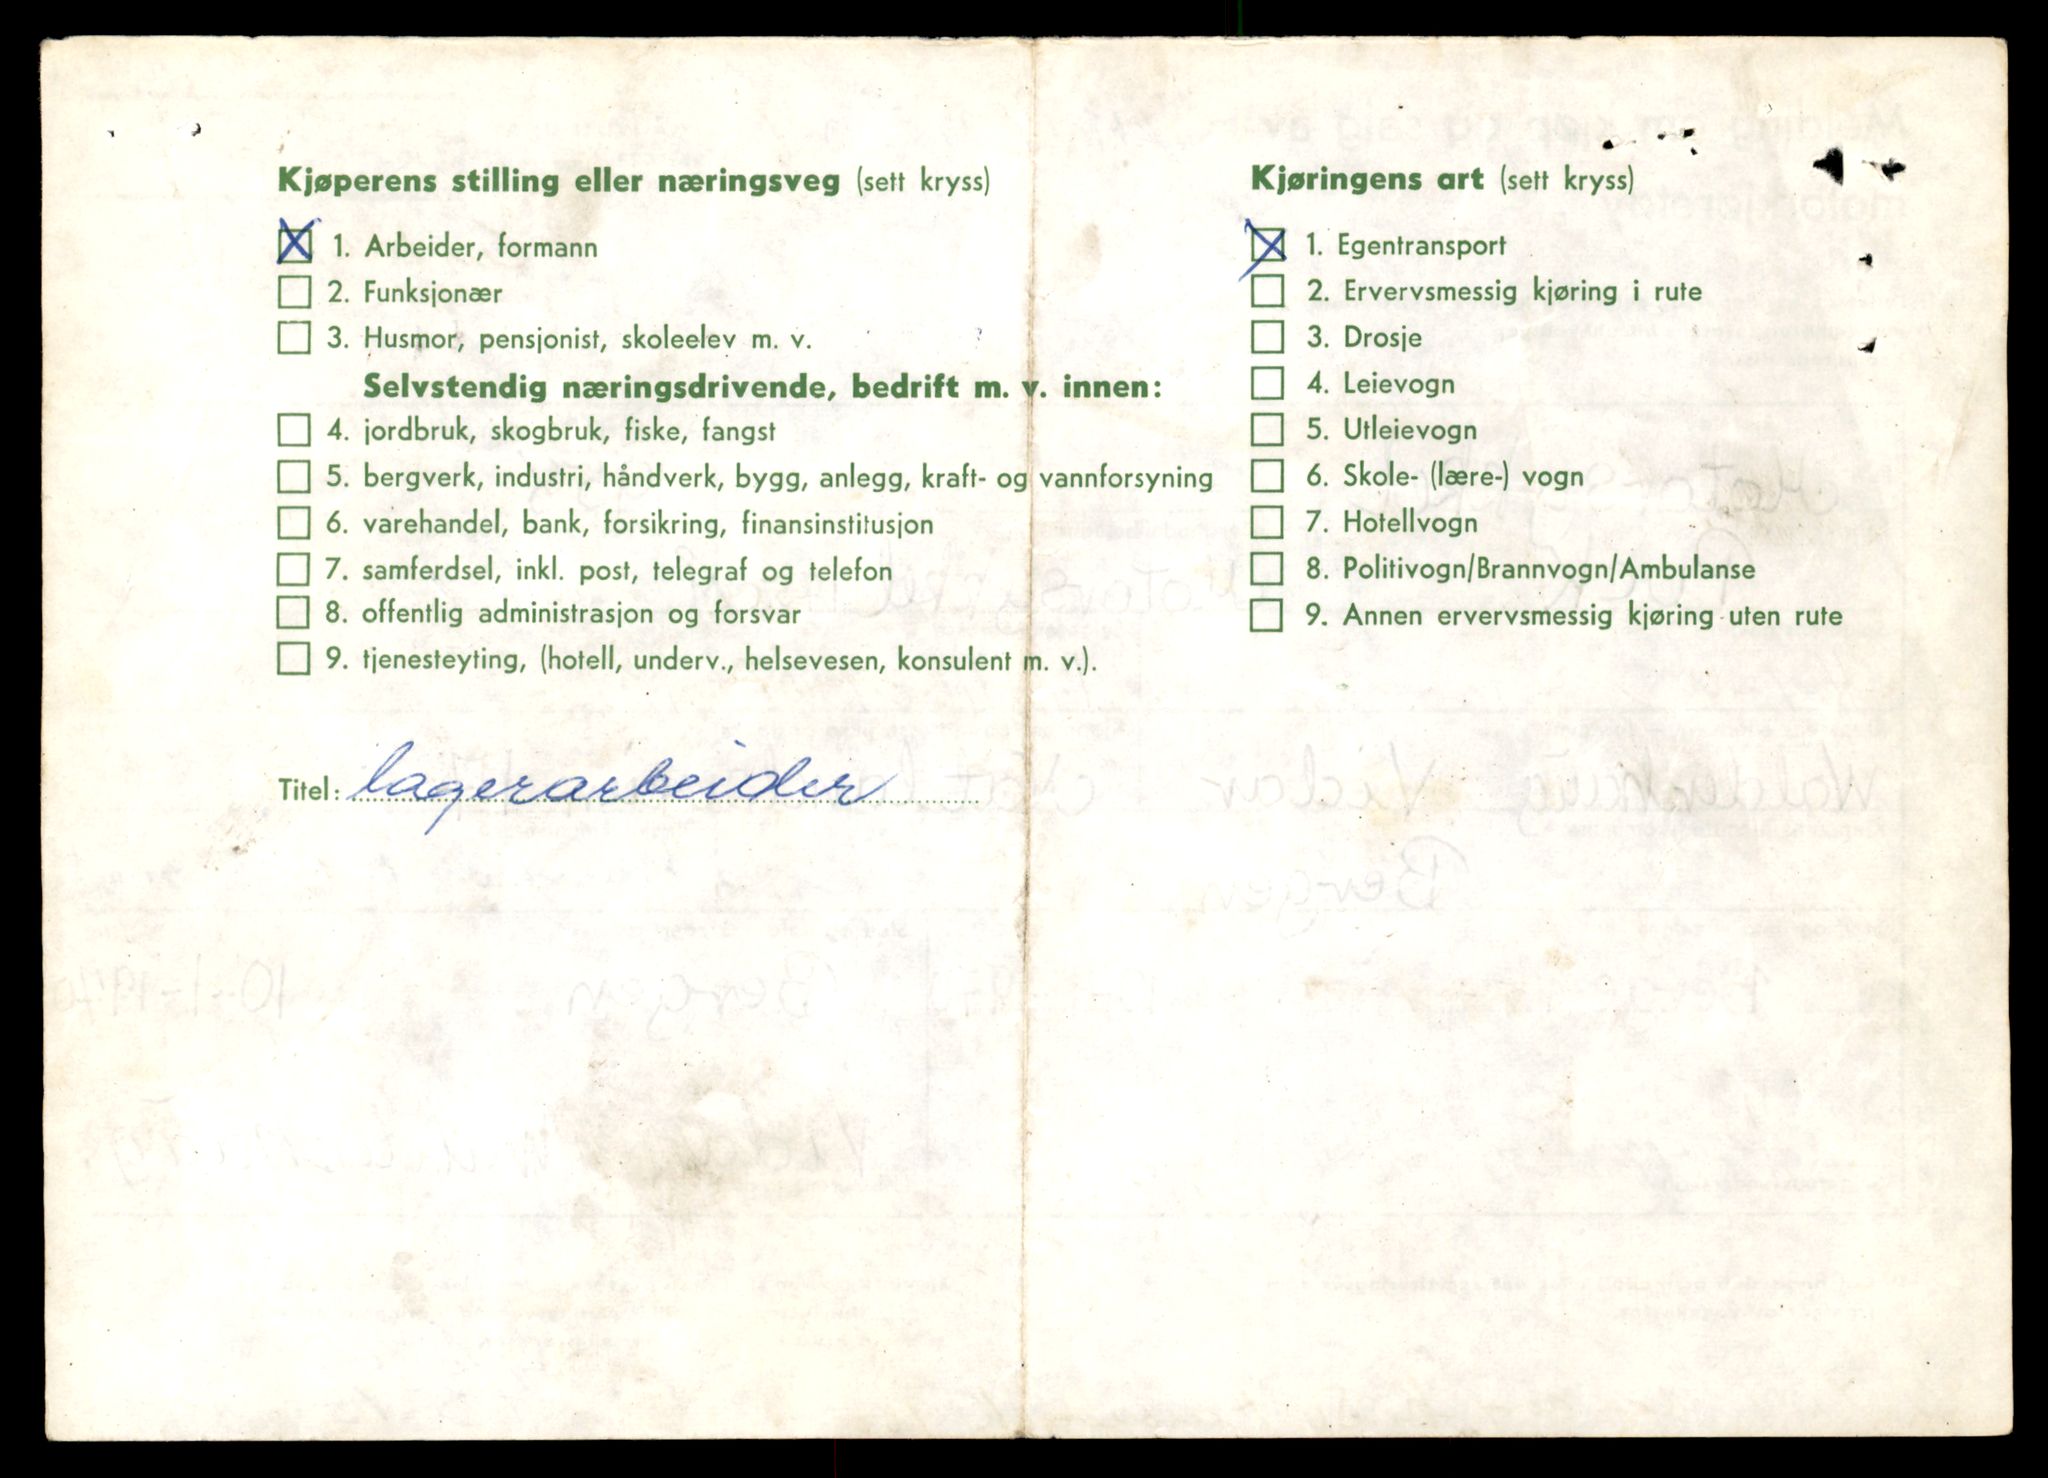 Kjøperens stilling eller næringsveg (sett kryss)
1. Arbeider, formann
2. Funksjonær
3. Husmor, pensjonist, skoleelev m. v.
Selvstendig næringsdrivende, bedrift m. v. innen:
4. jordbruk, skogbruk, fiske, fangst
5. bergverk, industri, håndverk, bygg, anlegg, kraft- og vannforsyning
6. varehandel, bank, forsikring, finansinstitusjon
7. samferdsel, inkl. post, telegraf og telefon
8. offentlig administrasjon og forsvar
9. tjenesteyting, (hotell, underv., helsevesen, konsulent m. v.).
Titel: lagerarbeider
Kjøringens art (sett kryss)
1. Egentransport
2. Ervervsmessig kjøring i rute
3. Drosje
4. Leievogn
5. Utleievogn
6. Skole- (lære-) vogn
7. Hotellvogn
8. Politivogn/Brannvogn/Ambulanse
9. Annen ervervsmessig kjøring uten rute